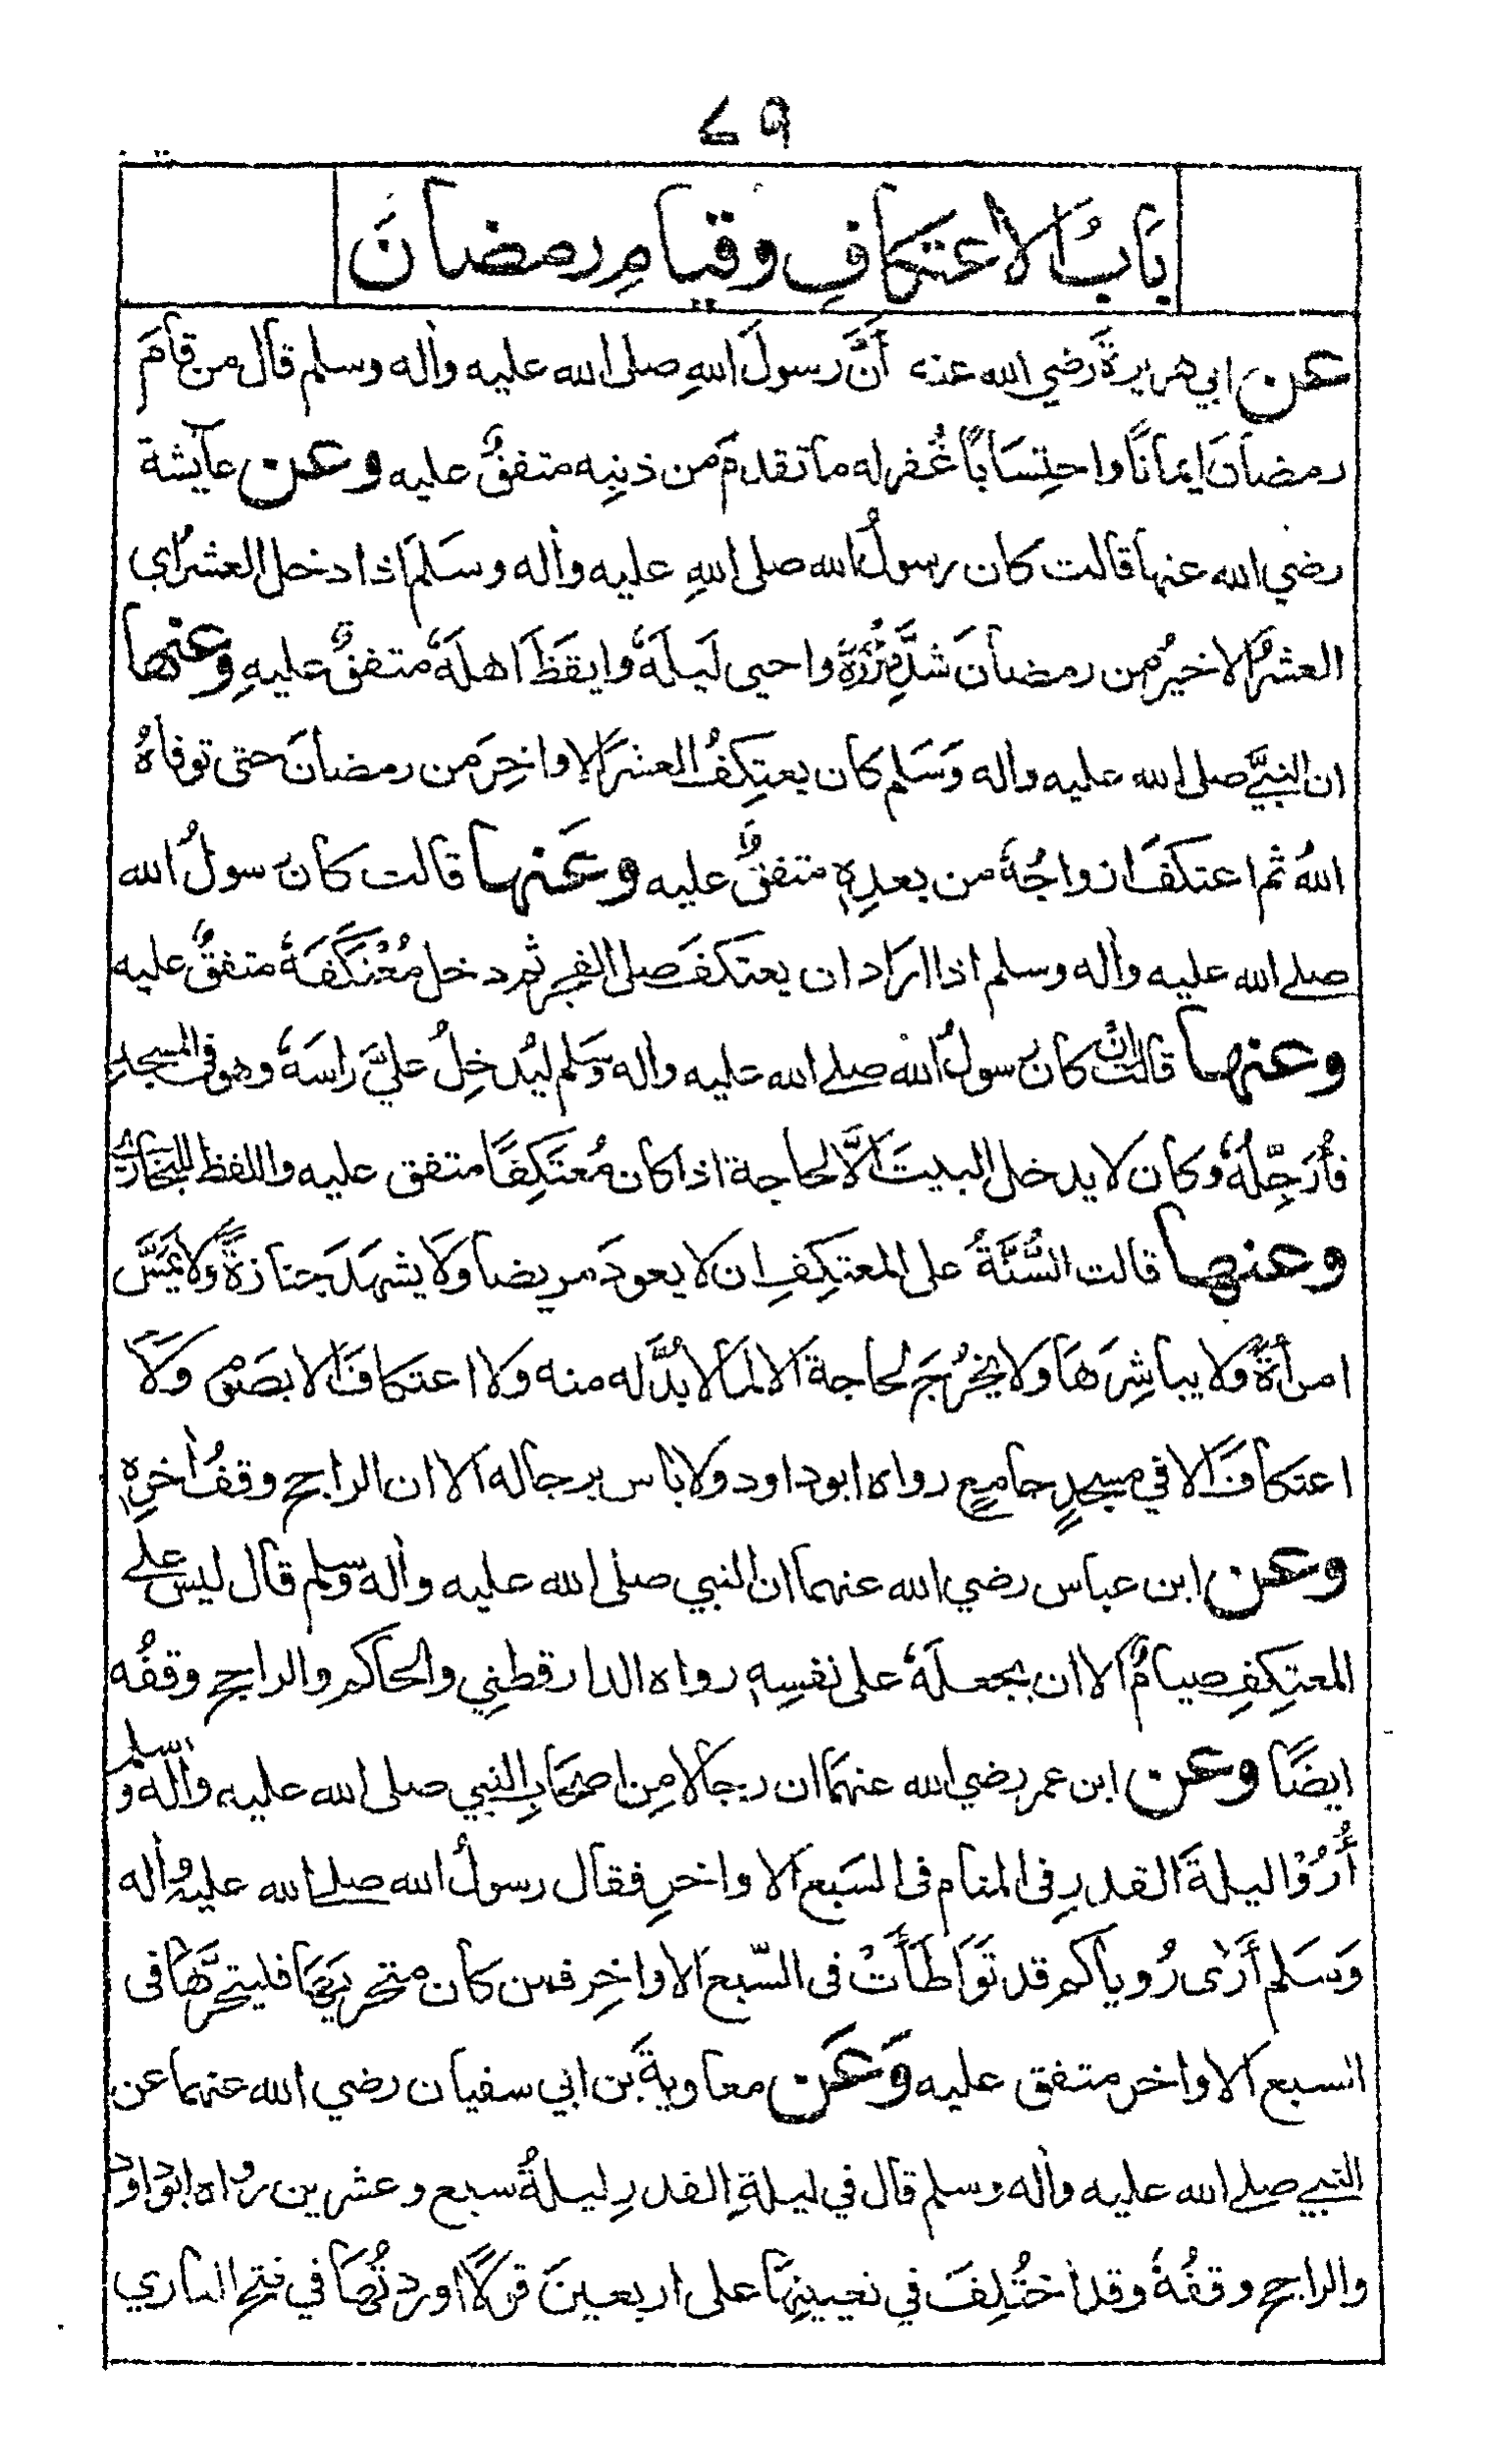 ٧٩
بَابُ الاعتكافِ وقيامِ رمضانَ
عن ابي هريرةَ رضي الله عنه أنَّ رسولَ اللهِ صلى الله عليه واٰله وسلم قال من قامَ
رمضانَ ايمانًا واحتِسَابًا غُفرله ما تقدمَ من ذنبِه متفقٌ عليه وعن عآيشة
رضي الله عنها قالت كان رسولُ الله صلى اللهِ عليه واٰله وسَلمَ اذا دخل العشرُ اي
العشرُ الاخيرُ من رمضانَ شدَّ مِئْزَرَهُ واحيى لَيلَهُ وايقَظَ اهلَهُ متفقٌ عليهِ وعنها
ان النبيَّ صلى الله عليه واٰله وَسَلم كان يعتكِفُ العشرَ الاواخِرَ من رمضانَ حتى توفاهُ
اللهُ ثم اعتكفَ ازواجُهُ من بعدِهٖ متفقٌ عليه وعَنها قالت كان رسولُ الله
صلے الله عليه واٰله وسلم اذا ارَادان يعتكفَ صلى الفجر ثم دخل مُعْتَكَفَهُ متفقٌ عليه
وعنها قالت ان كان رسولُ الله صلے الله عليه واٰله وسَلم ليُدخِلُ عليَّ راسَهُ وهو فى المسجدِ
فأُرَجِّلُهُ وكان لا يدخل البيتَ الَّا لحاجة اذا كان مُعتَكِفًا متفق عليه واللفظ للبخاريِّ
وعنها قالت السُّنَّةُ على المعتكِفِ ان لا يعودَ مريضا ولَا يشهَدَ جنازةً ولَا يَمَسَّ
امرأةً ولا يباشِرَهَا ولا يخرُجَ لحاجة الا لما لابُدَّ له منه ولا اعتكافَ الا بصَومٍ ولَا
اعتكافَ الا في مسجدٍ جامعٍ رواه ابوداود ولا باس برجاله الا ان الراجح وقفُ اٰخرِهٖ
وعن ابن عباس رضي الله عنهما ان النبي صلى الله عليه واٰله وسلم قال ليس علے
المعتكِفِ صيامٌ الا ان يجعلَهُ على نفسِهٖ رواه الدارقطنِي والحاكم والراجح وقفُه
ايضًا وعن ابن عمر رضي الله عنهمَا ان رجالا مِن اصحَابِ النبي صلى الله عليه واٰله وسلم
أُرُوْا ليلةَ القدرِ فى المنام فى السَبعِ الاواخرِ فقال رسولُ الله صلے الله عليه واٰله
وَسَلم أَرٰى رُوياكم قد تَوَاطَأَتْ فى السّبعِ الاواخِرِ فمن كان متحريَهَا فليتحرَّهَا فى
السبع الاواخر متفق عليه وَعَن معاويةَ بن ابي سفيان رضي الله عنهما عن
النبي صلے الله عليه واٰله وسلم قال في ليلةِ القدرِ ليلةُ سبع وعشرين رواه ابوداود
والراجح وقفُهُ وقد اختُلِفَ في تعيينِهَا على اربعينَ قولًا اوردتُهَا في فتح الباري